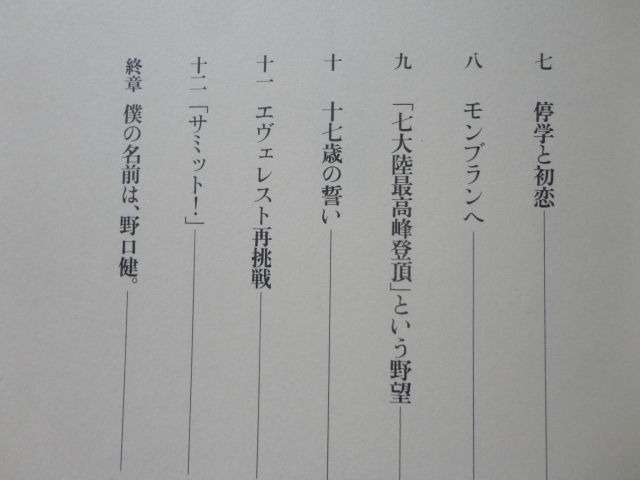 七 停学と初恋
八 モンブランへ
九 「七大陸最高峰登頂」という野望
十 十七歳の誓い
十一 エヴェレスト再挑戦
十二 「サミット!」
終章 僕の名前は、野口健。